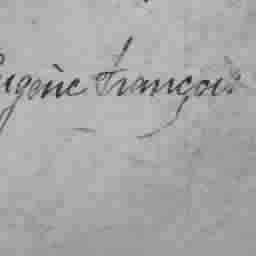 Eugène François